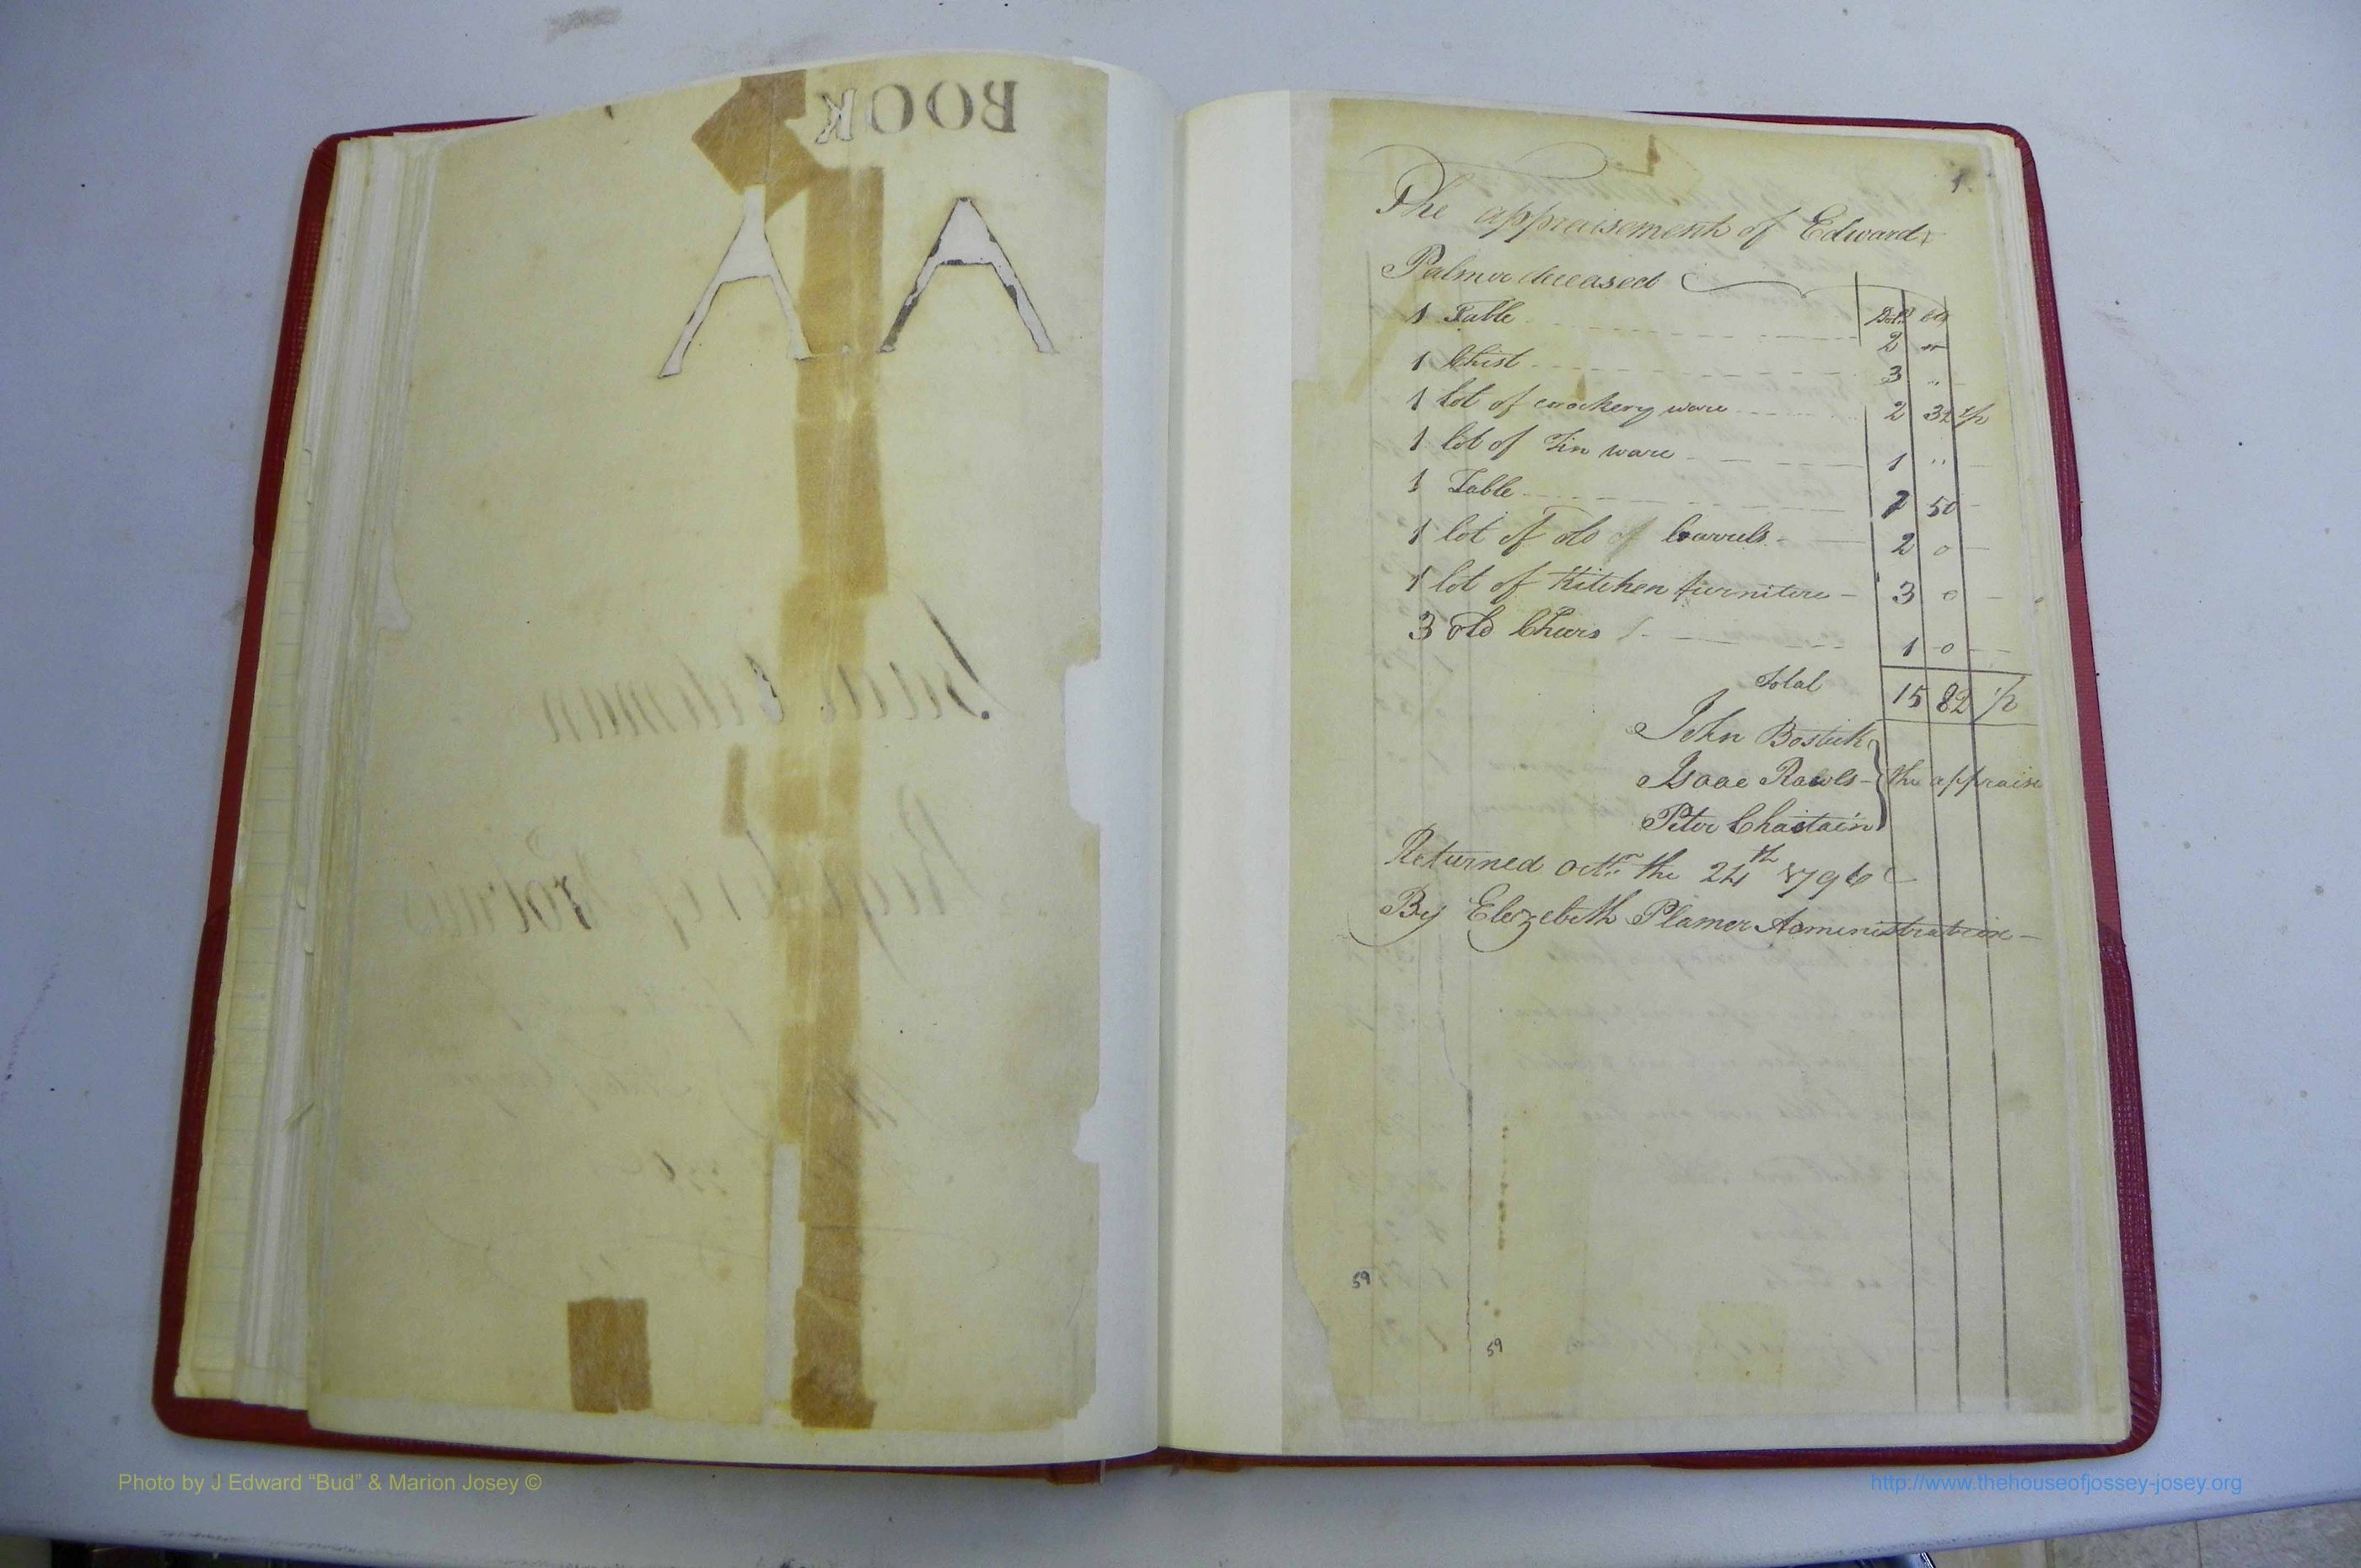 BOOK
A A
1
The appraisement of Edward
Palmer deceased
Dolls Cts
1 Table 2 "
1 Chist 3 "
1 Lot of crockery ware 2 32 1/2
1 lot of Tin ware 1 "
1 Table 1 50
1 lot of old of barrels 2 0
1 lot of Kitchen furniture 3 0
3 old Chears 1 0
Total 15 82 1/2
John Bostick
Isaac Rawls the appraise
Peter Chastain
Returned octr. the 24th 1796
By Elezebeth Plamer Administratrix
59
59
Photo by J Edward “Bud” & Marion Josey ©
http://www.thehouseofjossey-josey.org